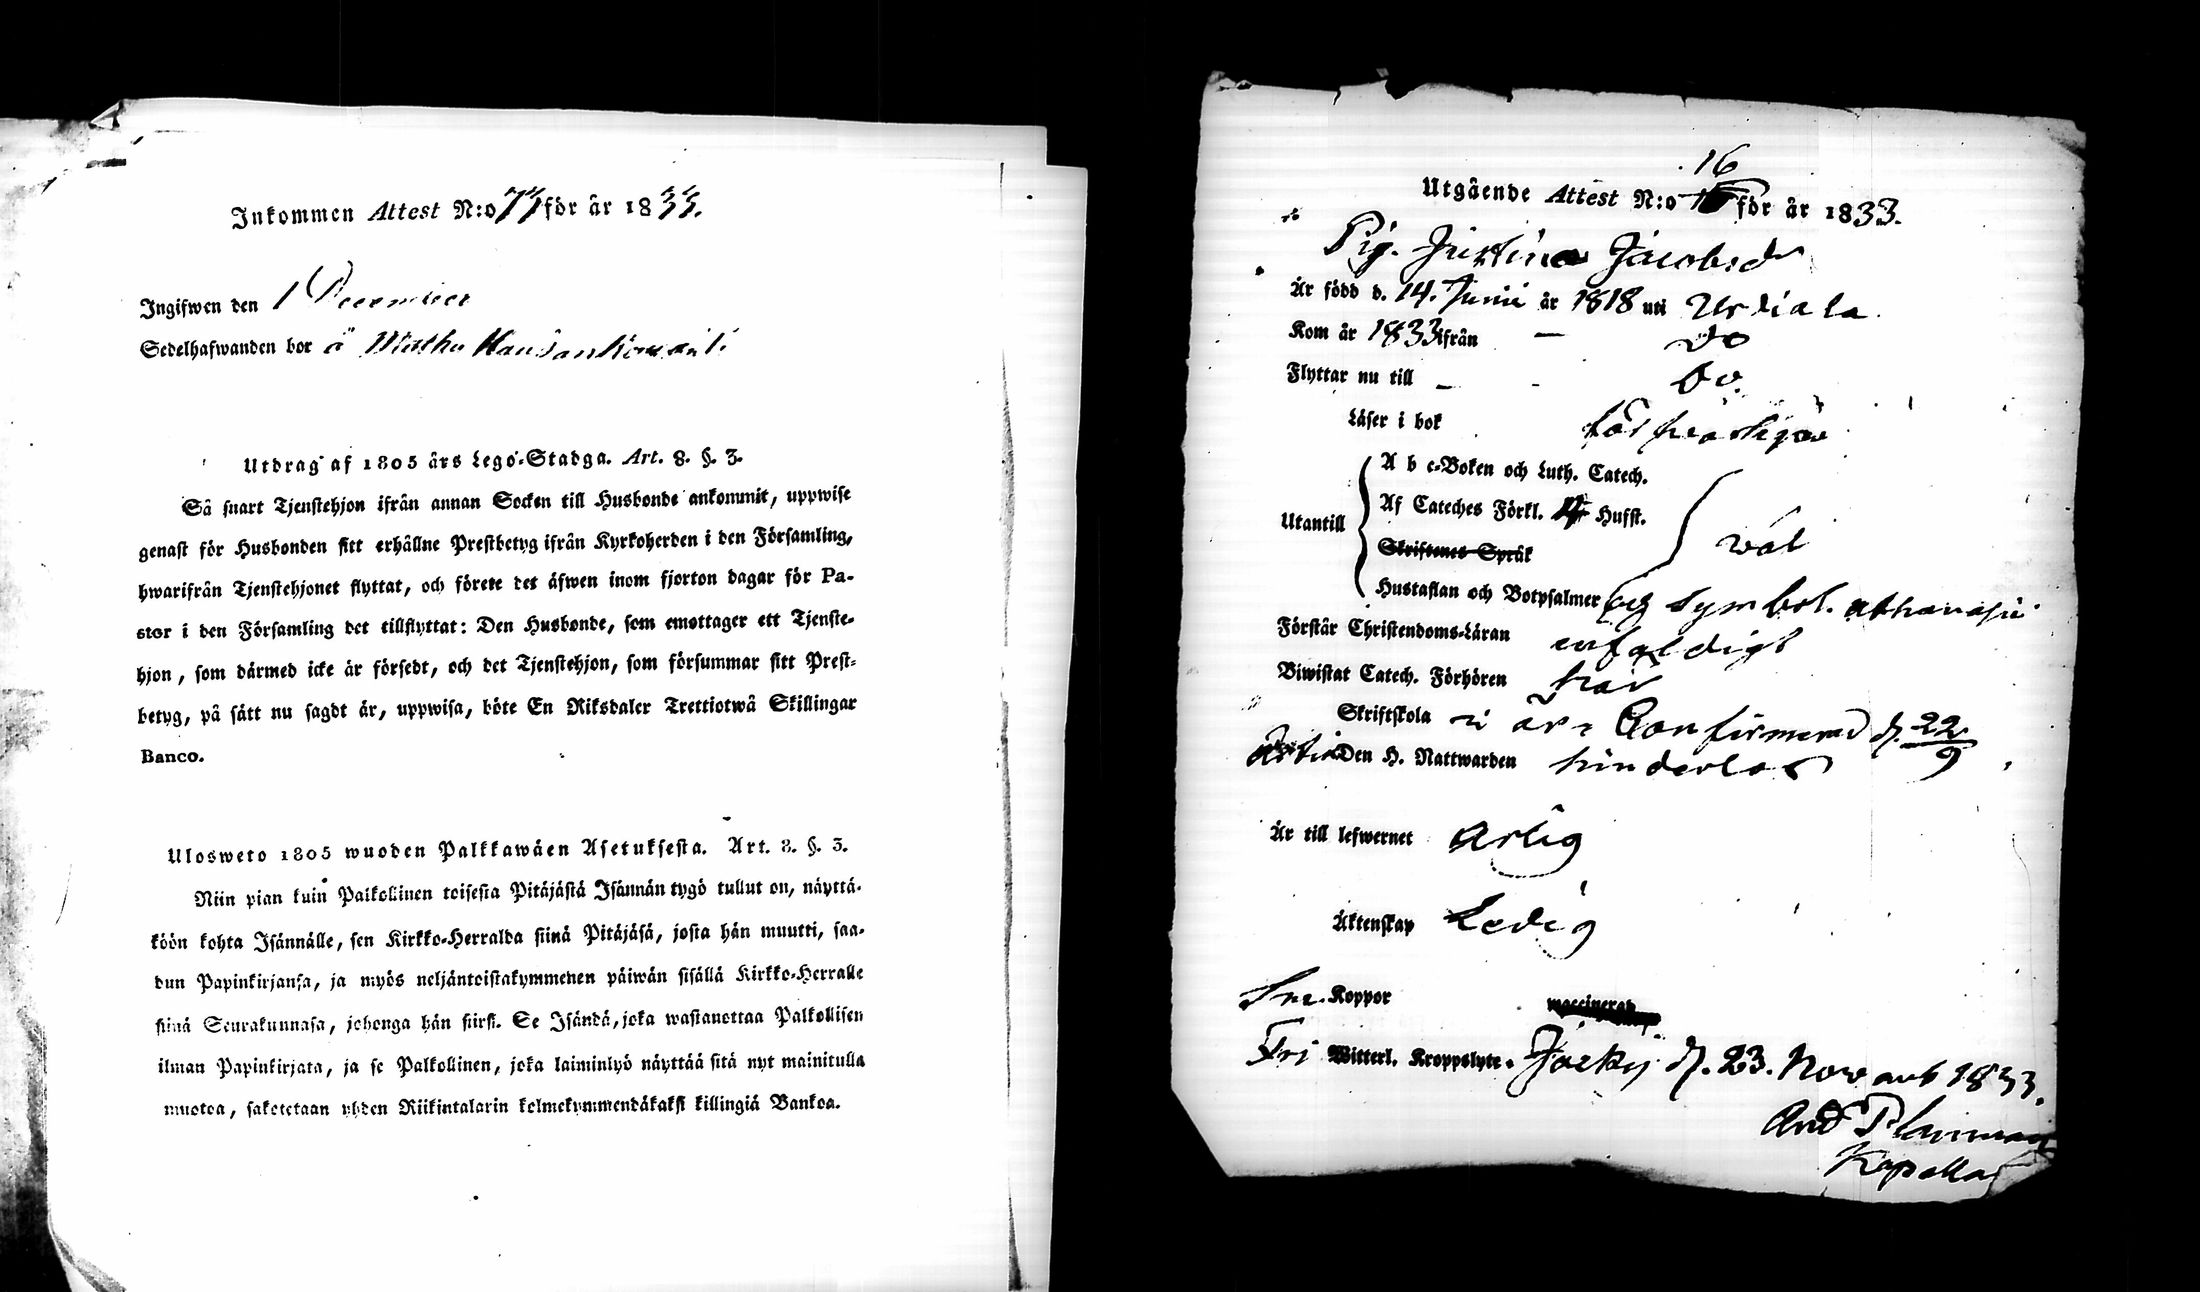 Inkommen Attest N:o 73 för år 1833.
Ingifwen den 1 December
Sedelhafwanden bor å
Utdrag af 1805 års Lego-Stadga. Art. 8. §. 3.
Så snart Tjenstehjon ifrån annan Socken till Husbonde ankommit, uppwise
genast för Husbonden sitt erhållne Prestbetyg ifrån Kyrkoherden i den Församling,
hwarifrån Tjenstehjonet flyttat, och förete det äfwen inom fjorton dagar för Pa-
stor i den Församling det tillflyttat: Den Husbonde, som emottager ett Tjenste-
hjon, som därmed icke är försedt, och det Tjenstehjon, som försummar sitt Prest-
betyg, på sätt nu sagdt är, uppwisa, böte En Riksdaler Trettiotwå Skillingar
Banco.
Ulosweto 1805 wuoden Palkkawäen Asetuksesta. Art. 8. §. 3.
Niin pian kuin Palkollinen toisesta Pitäjästä Isännän tygö tullut on, näyttä-
köön kohta Isännälle, sen Kirkko-Herralda siinä Pitäjäsä, josta hän muutti, saa-
dun Papinkirjansa, ja myös neljäntoistakymmenen päiwän sisällä Kirkko-Herralle
siinä Seurakunnasa, johonga hän siirsi. Se Isändä, joka wastanottaa Palkollisen
ilman Papinkirjata, ja se Palkollinen, joka laiminlyö näyttää sitä nyt mainitulla
muotoa, saketetaan yhden Riikintalarin kolmekymmendäkaksi killingiä Bankoa.
16
Utgående Attest N:o för år 1833.
Pig. Justina Jacobsdr
Är född d. 14. Junii år 1818 uti Urdiala
Kom år 1833 ifrån — do
Flyttar nu till - - do.
Läser i bok försvarligen
A b c-Boken och Luth. Catech.
Af Cateches Förkl. 4 Hufst.
Utantill
Skriftenes Språk
wäl
Hustaflan och Botpsalmer och Symbol. Athanasii
Förstår Christendoms-Läran enfaldigt
Biwistat Catech. Förhören här
Skriftskola i år = Confirmerad d. 22/9
Den H. Nattwarden hinderlös
Är till lefwernet ärlig
Äktenskap Ledig
Koppor vaccinerad
Fri Witterl. Kroppslyte. Jäckis d. 23. Novemb 1833.
And Planman
Kapellan